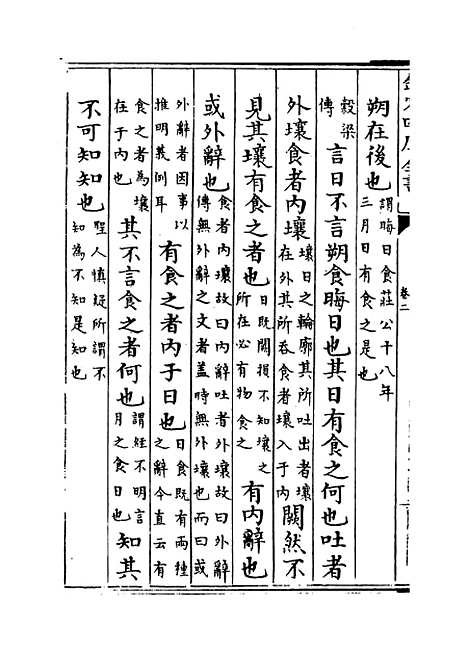 欽定四庫全書
卷二
朔在後也謂晦日食莊公十八年三月日有食之是也
穀梁傳言日不言朔食晦日也其日有食之何也吐者
外壤食者內壤壤日之輪廓其所吐出者壤在外其所吞食者壤入于內闕然不
見其壤有食之者也日既闕損不知壤之所在必有物食之有內辭也
或外辭也食者內壤故曰內辭吐者外壤故曰外辭傳無外辭之文者蓋時無外壤也而曰或
外辭者因事以推明義例耳有食之者內于日也日食既有兩種之辭今直云有
食之者為壤在于內也其不言食之者何也謂經不明言月之食日也知其
不可知知也聖人慎疑所謂不知為不知是知也